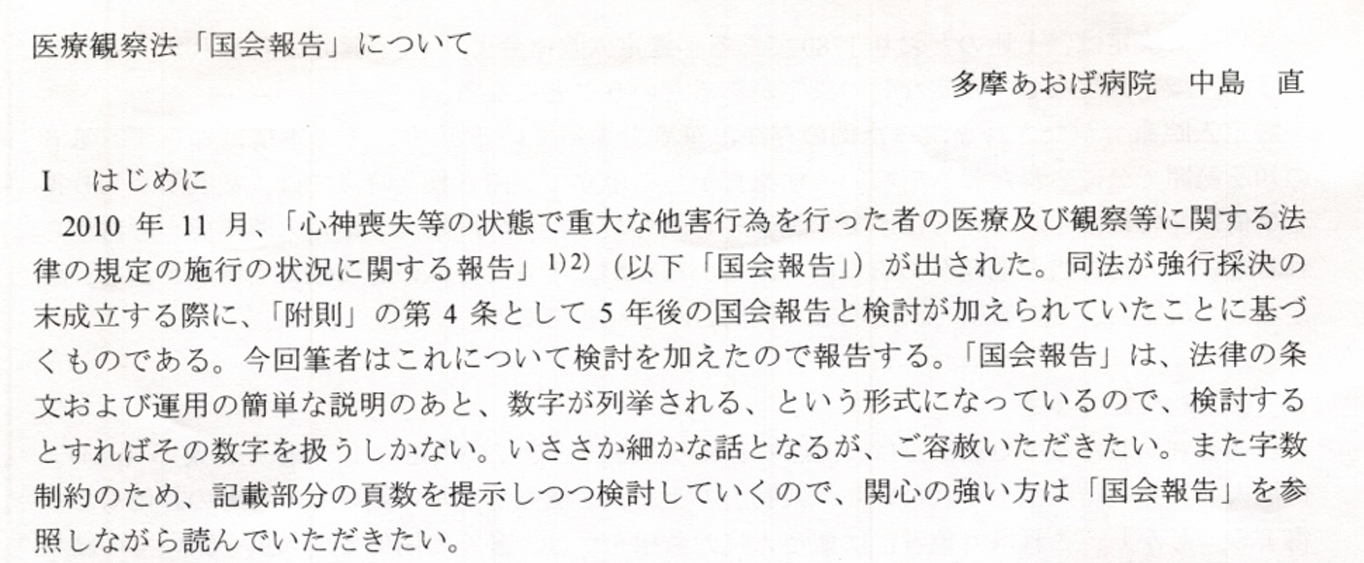 医療観察法「国会報告」について
多摩あおば病院　中島　直
I　はじめに
2010 年 11 月、「心神喪失等の状態で重大な他害行為を行った者の医療及び観察等に関する法
律の規定の施行の状況に関する報告」1)2)（以下「国会報告」）が出された。同法が強行採決の
末成立する際に、「附則」の第 4 条として 5 年後の国会報告と検討が加えられていたことに基づ
くものである。今回筆者はこれについて検討を加えたので報告する。「国会報告」は、法律の条
文および運用の簡単な説明のあと、数字が列挙される、という形式になっているので、検討する
とすればその数字を扱うしかない。いささか細かな話となるが、ご容赦いただきたい。また字数
制約のため、記載部分の頁数を提示しつつ検討していくので、関心の強い方は「国会報告」を参
照しながら読んでいただきたい。